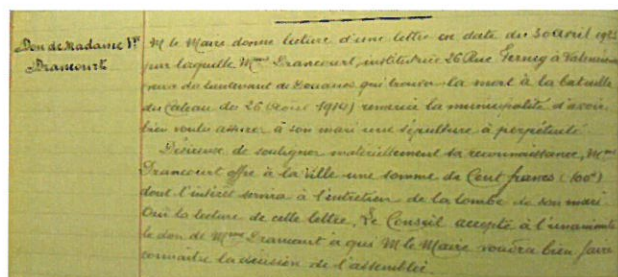 Don de Madame Vve
Drancourt
M le Maire donne lecture d'une lettre en date du 30 avril 192
par laquelle Mme Drancourt, institutrice 26 Rue Ferney à Valencien
veuve du lieutenant de Douanes qui trouva la mort à la bataille
du Cateau des 26 (Août 1914) remercie la municipalité d'avoir
bien voulu assurer à son mari une sépulture à perpétuité
Désireuse de souligner matériellement sa reconnaissance, Mme
Drancourt offre à la Ville une somme de Cent francs (100f)
dont l'intérêt servira à l'entretien de la tombe de son mari
Ouï la lecture de cette lettre, Le Conseil accepte à l'unanimité
le don de Mme Drancourt à qui M le Maire voudra bien faire
connaître la décision de l'assemblée.